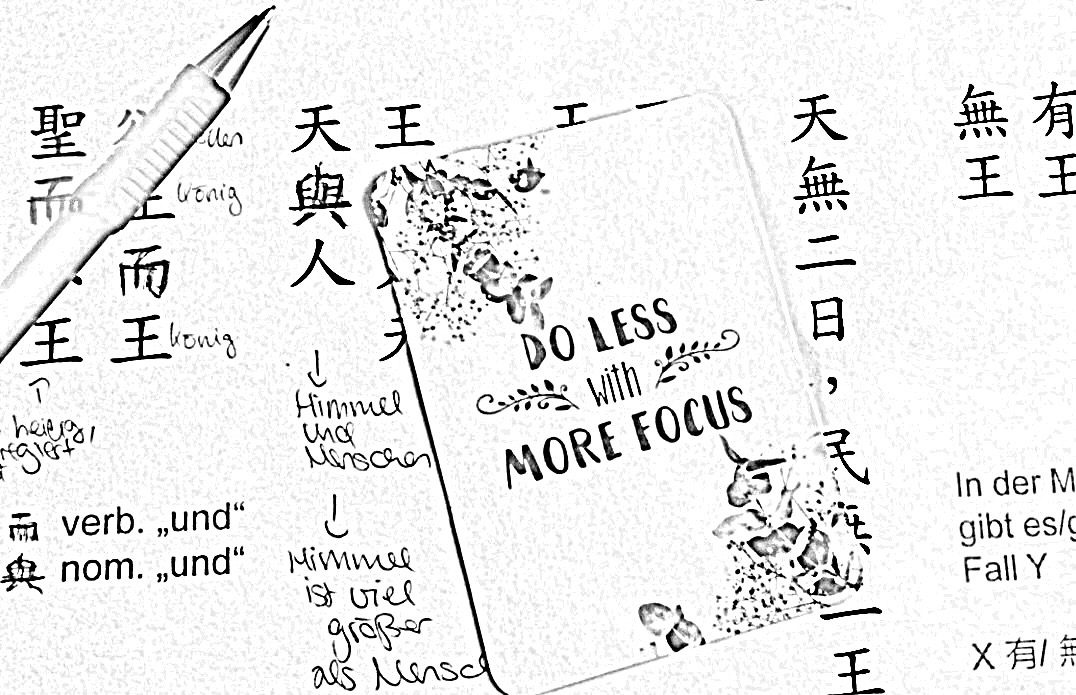 聖而
王
公
王而王
könig
könig
heilig,
regiert
而 verb. „und“
與 nom. „und“
天與人
Himmel
und
Menschen
Himmel
ist viel
größer
als Mensch
王
王
DO LESS
with
MORE FOCUS
天無二日，民無二王
無王
有王
In der M
gibt es/g
Fall Y
X 有/ 無